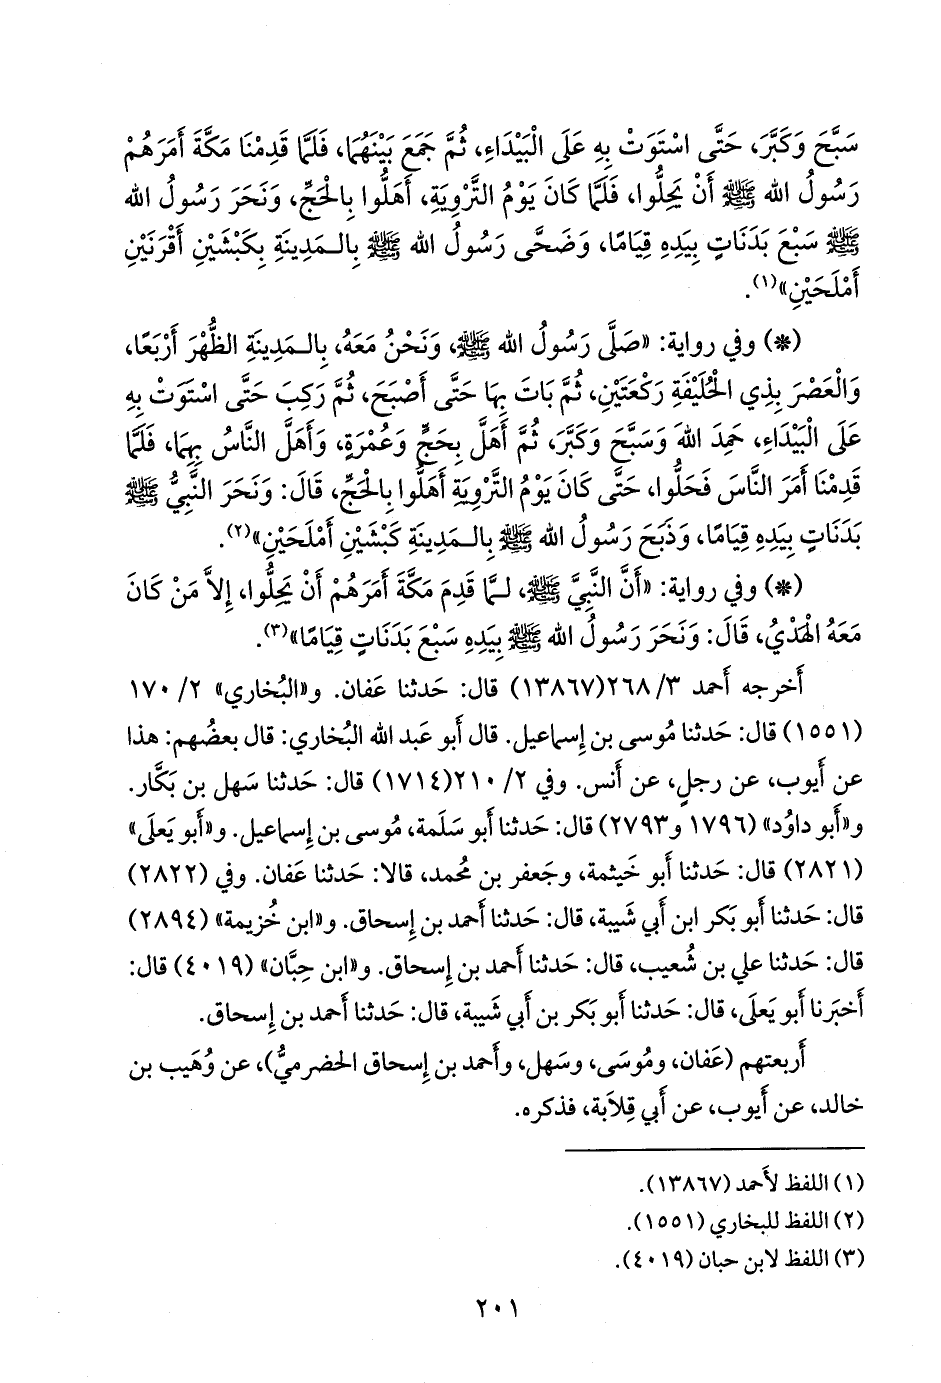 سَبَّحَ وَكَبَّرَ، حَتَّى اسْتَوَتْ بِهِ عَلَى الْبَيْدَاءِ، ثُمَّ جَمَعَ بَيْنَهُمَا، فَلَمَّا قَدِمْنَا مَكَّةَ أَمَرَهُمْ
رَسُولُ الله ﷺ أَنْ يَحِلُّوا، فَلَمَّا كَانَ يَوْمُ التَّرْوِيَةِ، أَهَلُّوا بِالْحَجِّ، وَنَحَرَ رَسُولُ الله
ﷺ سَبْعَ بَدَنَاتٍ بِيَدِهِ قِيَامًا، وَضَحَّى رَسُولُ الله ﷺ بِالـمَدِينَةِ بِكَبْشَيْنِ أَقْرَنَيْنِ
أَمْلَحَيْنِ»(١).
(*) وفي رواية: «صَلَّى رَسُولُ الله ﷺ، وَنَحْنُ مَعَهُ، بِالـمَدِينَةِ الظُّهْرَ أَرْبَعًا،
وَالْعَصْرَ بِذِي الْحُلَيْفَةِ رَكْعَتَيْنِ، ثُمَّ بَاتَ بِهَا حَتَّى أَصْبَحَ، ثُمَّ رَكِبَ حَتَّى اسْتَوَتْ بِهِ
عَلَى الْبَيْدَاءِ، حَمِدَ اللهَ وَسَبَّحَ وَكَبَّرَ، ثُمَّ أَهَلَّ بِحَجٍّ وَعُمْرَةٍ، وَأَهَلَّ النَّاسُ بِهِمَا، فَلَمَّا
قَدِمْنَا أَمَرَ النَّاسَ فَحَلُّوا، حَتَّى كَانَ يَوْمُ التَّرْوِيَةِ أَهَلُّوا بِالْحَجِّ، قَالَ: وَنَحَرَ النَّبِيُّ ﷺ
بَدَنَاتٍ بِيَدِهِ قِيَامًا، وَذَبَحَ رَسُولُ الله ﷺ بِالـمَدِينَةِ كَبْشَيْنِ أَمْلَحَيْنِ»(٢).
(*) وفي رواية: «أَنَّ النَّبِيَّ ﷺ، لـمَّا قَدِمَ مَكَّةَ أَمَرَهُمْ أَنْ يَحِلُّوا، إِلاَّ مَنْ كَانَ
مَعَهُ الْهَدْيُ، قَالَ: وَنَحَرَ رَسُولُ الله ﷺ بِيَدِهِ سَبْعَ بَدَنَاتٍ قِيَامًا»(٣).
أَخرجه أَحمد ٣/ ٢٦٨(١٣٨٦٧) قال: حَدثنا عَفان. و«البُخاري» ٢/ ١٧٠
(١٥٥١) قال: حَدثنا مُوسى بن إِسماعيل. قال أَبو عَبد الله البُخاري: قال بعضُهم: هذا
عن أَيوب، عن رجلٍ، عن أَنس. وفي ٢/ ٢١٠(١٧١٤) قال: حَدثنا سَهل بن بَكَّار.
و«أَبو داوُد» (١٧٩٦ و٢٧٩٣) قال: حَدثنا أَبو سَلَمة، مُوسى بن إِسماعيل. و«أَبو يَعلَى»
(٢٨٢١) قال: حَدثنا أَبو خَيثمة، وجَعفر بن مُحمد، قالا: حَدثنا عَفان. وفي (٢٨٢٢)
قال: حَدثنا أَبو بَكر ابن أَبي شَيبة، قال: حَدثنا أَحمد بن إِسحاق. و«ابن خُزيمة» (٢٨٩٤)
قال: حَدثنا علي بن شُعيب، قال: حَدثنا أَحمد بن إِسحاق. و«ابن حِبَّان» (٤٠١٩) قال:
أَخبَرنا أَبو يَعلَى، قال: حَدثنا أَبو بَكر بن أَبي شَيبة، قال: حَدثنا أَحمد بن إِسحاق.
أَربعتهم (عَفان، ومُوسَى، وسَهل، وأَحمد بن إِسحاق الحَضرميُّ)، عن وُهَيب بن
خالد، عن أَيوب، عن أَبي قِلاَبة، فذكره.
(١) اللفظ لأَحمد (١٣٨٦٧).
(٢) اللفظ للبخاري (١٥٥١).
(٣) اللفظ لابن حبان (٤٠١٩).
٢٠١